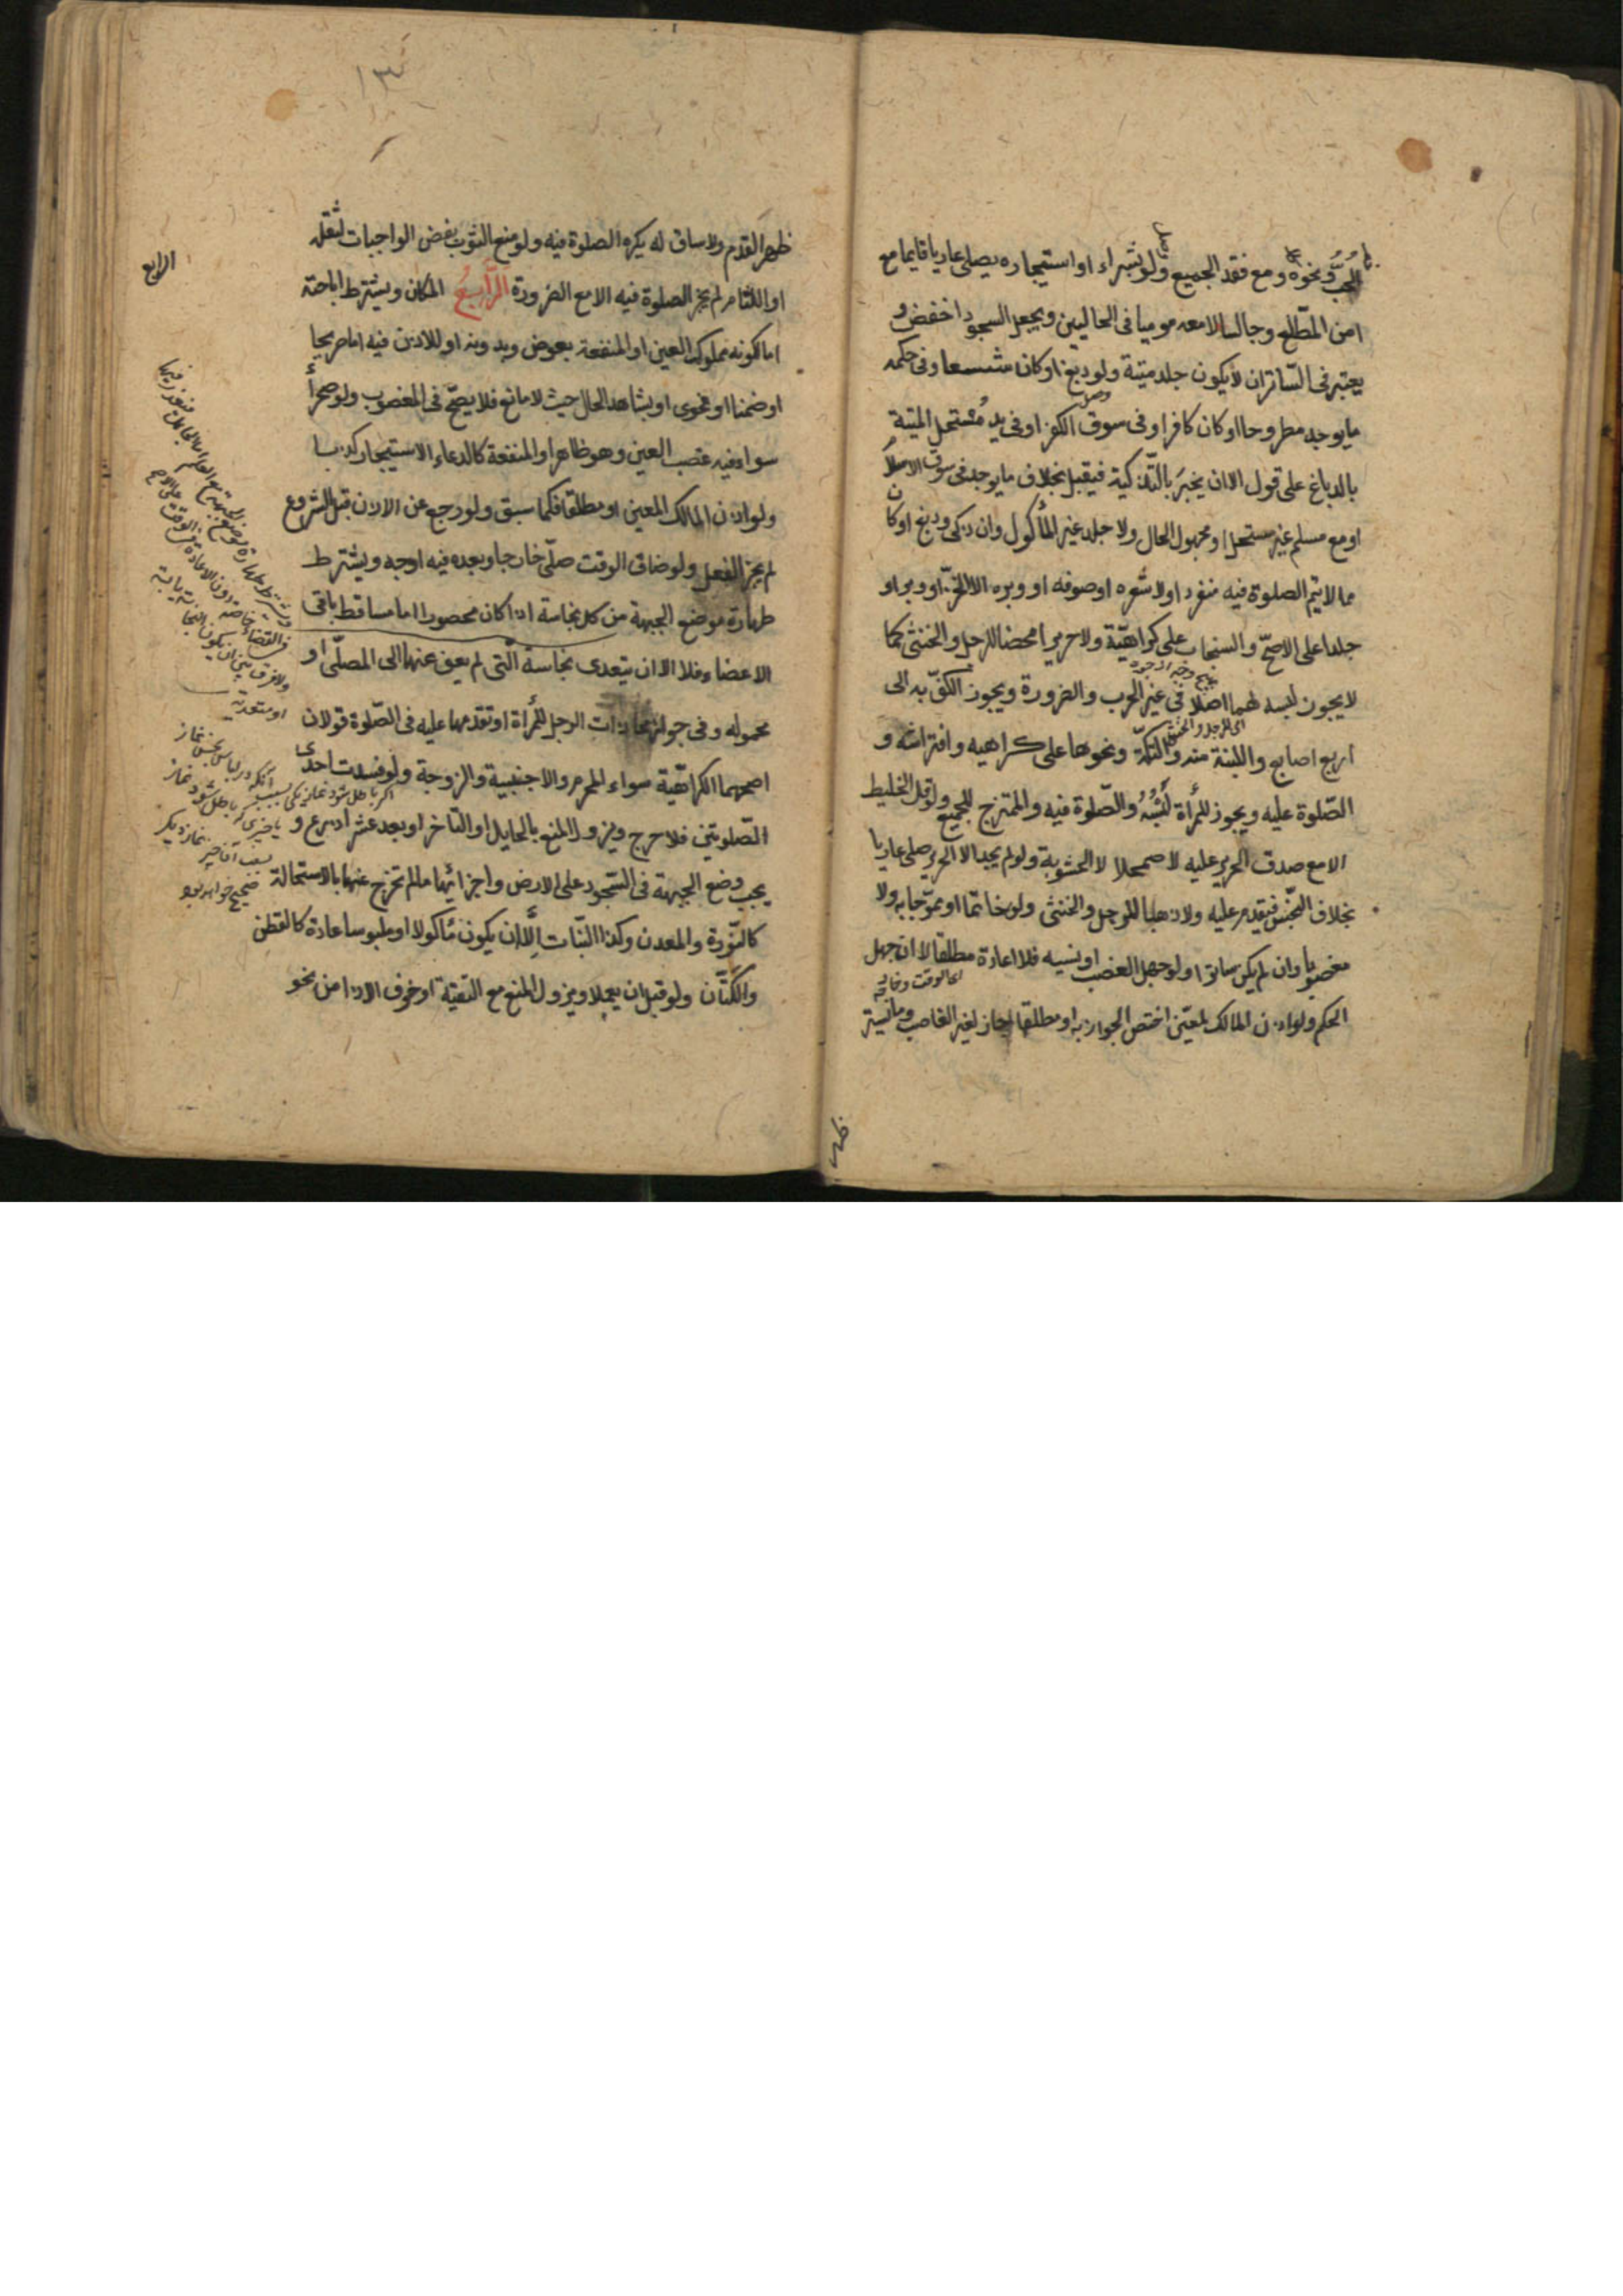 الجب ونحوه ومع فقد الجميع ولو بشراء او استيجاره يصلى عاريا قايما مع
امن المطلع وجالسا لا معه موميا فى الحالين ويجعل السجود اخفض و
يعتبر فى الساتر ان لا يكون جلد ميتة ولو دبغ او كان وفى حكمه
ما يوجد مطروحا او كان كافرا وفى سوق الكفر او فى يد مستحل الميتة
بالدباغ على قول الا ان يخبر بالتذكية فيقبل بخلاف ما يوجد فى سوق الاسلام
او مع مسلم غير مستحل او مجهول الحال ولا جلد غير المأكول وان ذكى ودبغ او كان
مما لا يتم الصلوة فيه منفردا ولا شعره او صوفه او وبره الا الخز وبرا و
جلدا على الاصح والسنجاب على كراهية ولا حريرا محضا للرجل والخنثى كما
لا يجوز لبسه لهما اصلا فى غير الحرب والضرورة ويجوز الكف به الى
اى للرجل والخنثى
اربع اصابع واللبنة منه والتكة ونحوها على كراهيه وافتراشه و
الصلوة عليه ويجوز للمرأة لبسه والصلوة فيه والممتزج للجميع ولو قل الخليط
الا مع صدق الحرير عليه لاضمحلا لا الحشو به ولو لم يجد الا الحرير صلى عاريا
بخلاف النجس فيقدم عليه ولا ذهبا للرجل والخنثى ولو خاتما او مموها به ولا
مغصوبا وان لم يكن ساترا ولو جهل الغصب او نسيه فلا اعادة مطلقا لا ان جهل
الحكم ولو اذن المالك لمعين اختص الجواز به او مطلقا جاز لغير الغاصب وما يستر
ظهر القدم ولا ساق له يكره الصلوة فيه ولو منع الثوب بعض الواجبات لثقله
او اللثام لم يجز الصلوة فيه الا مع الضرورة الرابع المكان ويشترط اباحته
اما لكونه مملوك العين او المنفعة بعوض وبدونه او للاذن فيه اما صريحا
او ضمنا او فحوى او بشاهد الحال حيث لا مانع فلا يصح فى المغصوب ولو صحرأ
سواء فيه غصب العين وهو ظاهر او المنفعة كادعاء الاستيجار كذبا
ولو اذن المالك المعين او مطلقا فكما سبق ولو رجع عن الاذن قبل الشروع
لم يجز الفعل ولو ضاق الوقت صلى خارجا وبعده فيه اوجه ويشترط
طهارة موضع الجبهة من كل نجاسة اذا كان محصورا اما مساقط باقى
الاعضاء فلا الا ان يتعدى نجاسة التى لم يعف عنها الى المصلى او
محموله وفى جواز محاذات الرجل للمرأة او تقدمها عليه فى الصلوة قولان
اصحهما الكراهية سواء المحرم والاجنبية والزوجة ولو فسدت احدى
الصلوتين فلا حرج ويزول المنع بالحايل او التأخر او بعد عشر اذرع و
يجب وضع الجبهة فى السجود على الارض واجزائها ما لم تخرج عنها بالاستحالة
كالنورة والمعدن وكذا النبات الا ان يكون مأكولا او ملبوسا عادة كالقطن
والكتان ولو قبل ان يعملا ويزول المنع مع التقية او خوف الاذا من نحو
الرابع
ولا فرق بين ان يكون النجاسة
او متعدية
آنكه در لباس نجس نماز
اگر باطل شود نماز يكى بسبب
يا چيزى كه باطل شود نماز
بسبب آن چيز نماز ديگر
صحيح خواهد بود